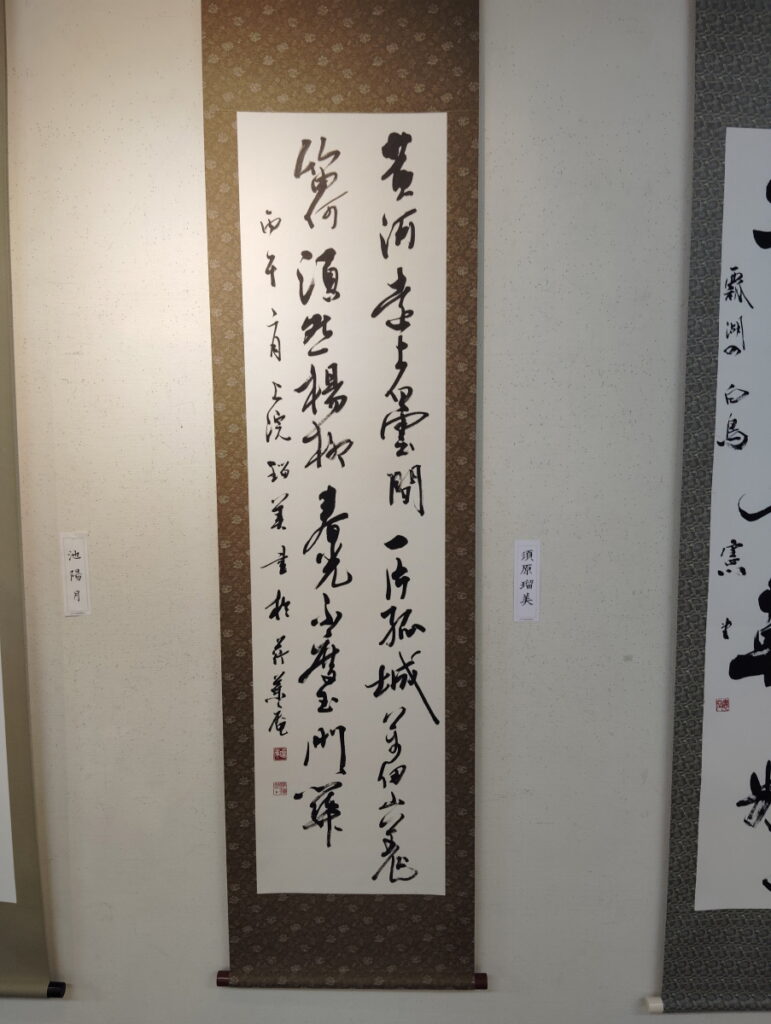 瓢湖の白鳥
須原瑠美
黄河遠上白雲間一片孤城萬仞山羌
笛何須怨楊柳春光不度玉門關
丙午二月上浣瑠美書於
池陽月